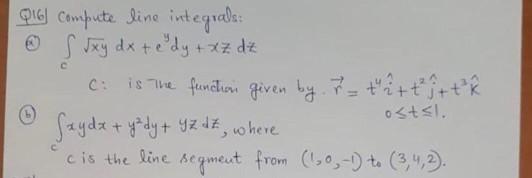 Q16) Compute line integrals:
(a) ∫_C √xy dx + e^y dy + xz dz
C: is the function given by. r⃗ = t⁴ î + t² ĵ + t³ k̂
0≤t≤1.
(b) ∫_C xydx + y²dy + yz dz, where
C is the line segment from (1,0,-1) to (3,4,2).